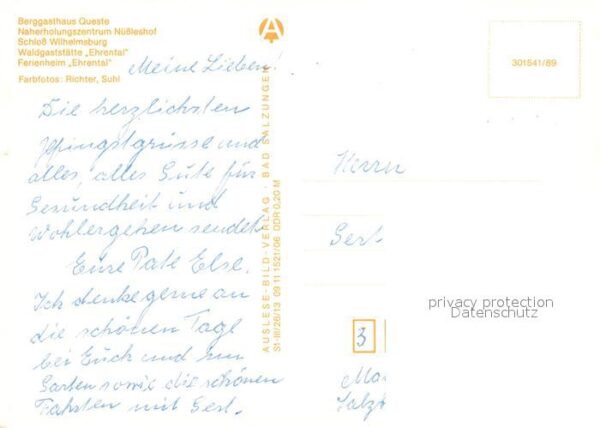 Berggasthaus Queste
Naherholungszentrum Nüßleshof
Schloß Wilhelmsburg
Waldgaststätte „Ehrental"
Ferienheim „Ehrental"
Farbfotos: Richter, Suhl
Meine Lieben!
Die herzlichsten
Pfingstgrüsse und
alles, alles Gute für
Gesundheit und
Wohlergehen sendet
Eure Pate Else.
Ich denke gerne an
die schönen Tage
bei Euch und im
Garten sowie die schönen
Fahrten mit Gert.
AUSLESE-BILD-VERLAG · BAD SALZUNGEN
S1-III/26/13 09 11 1521/06 DDR 0,20 M
301541/89
Herrn
Gert
privacy protection
Datenschutz
3